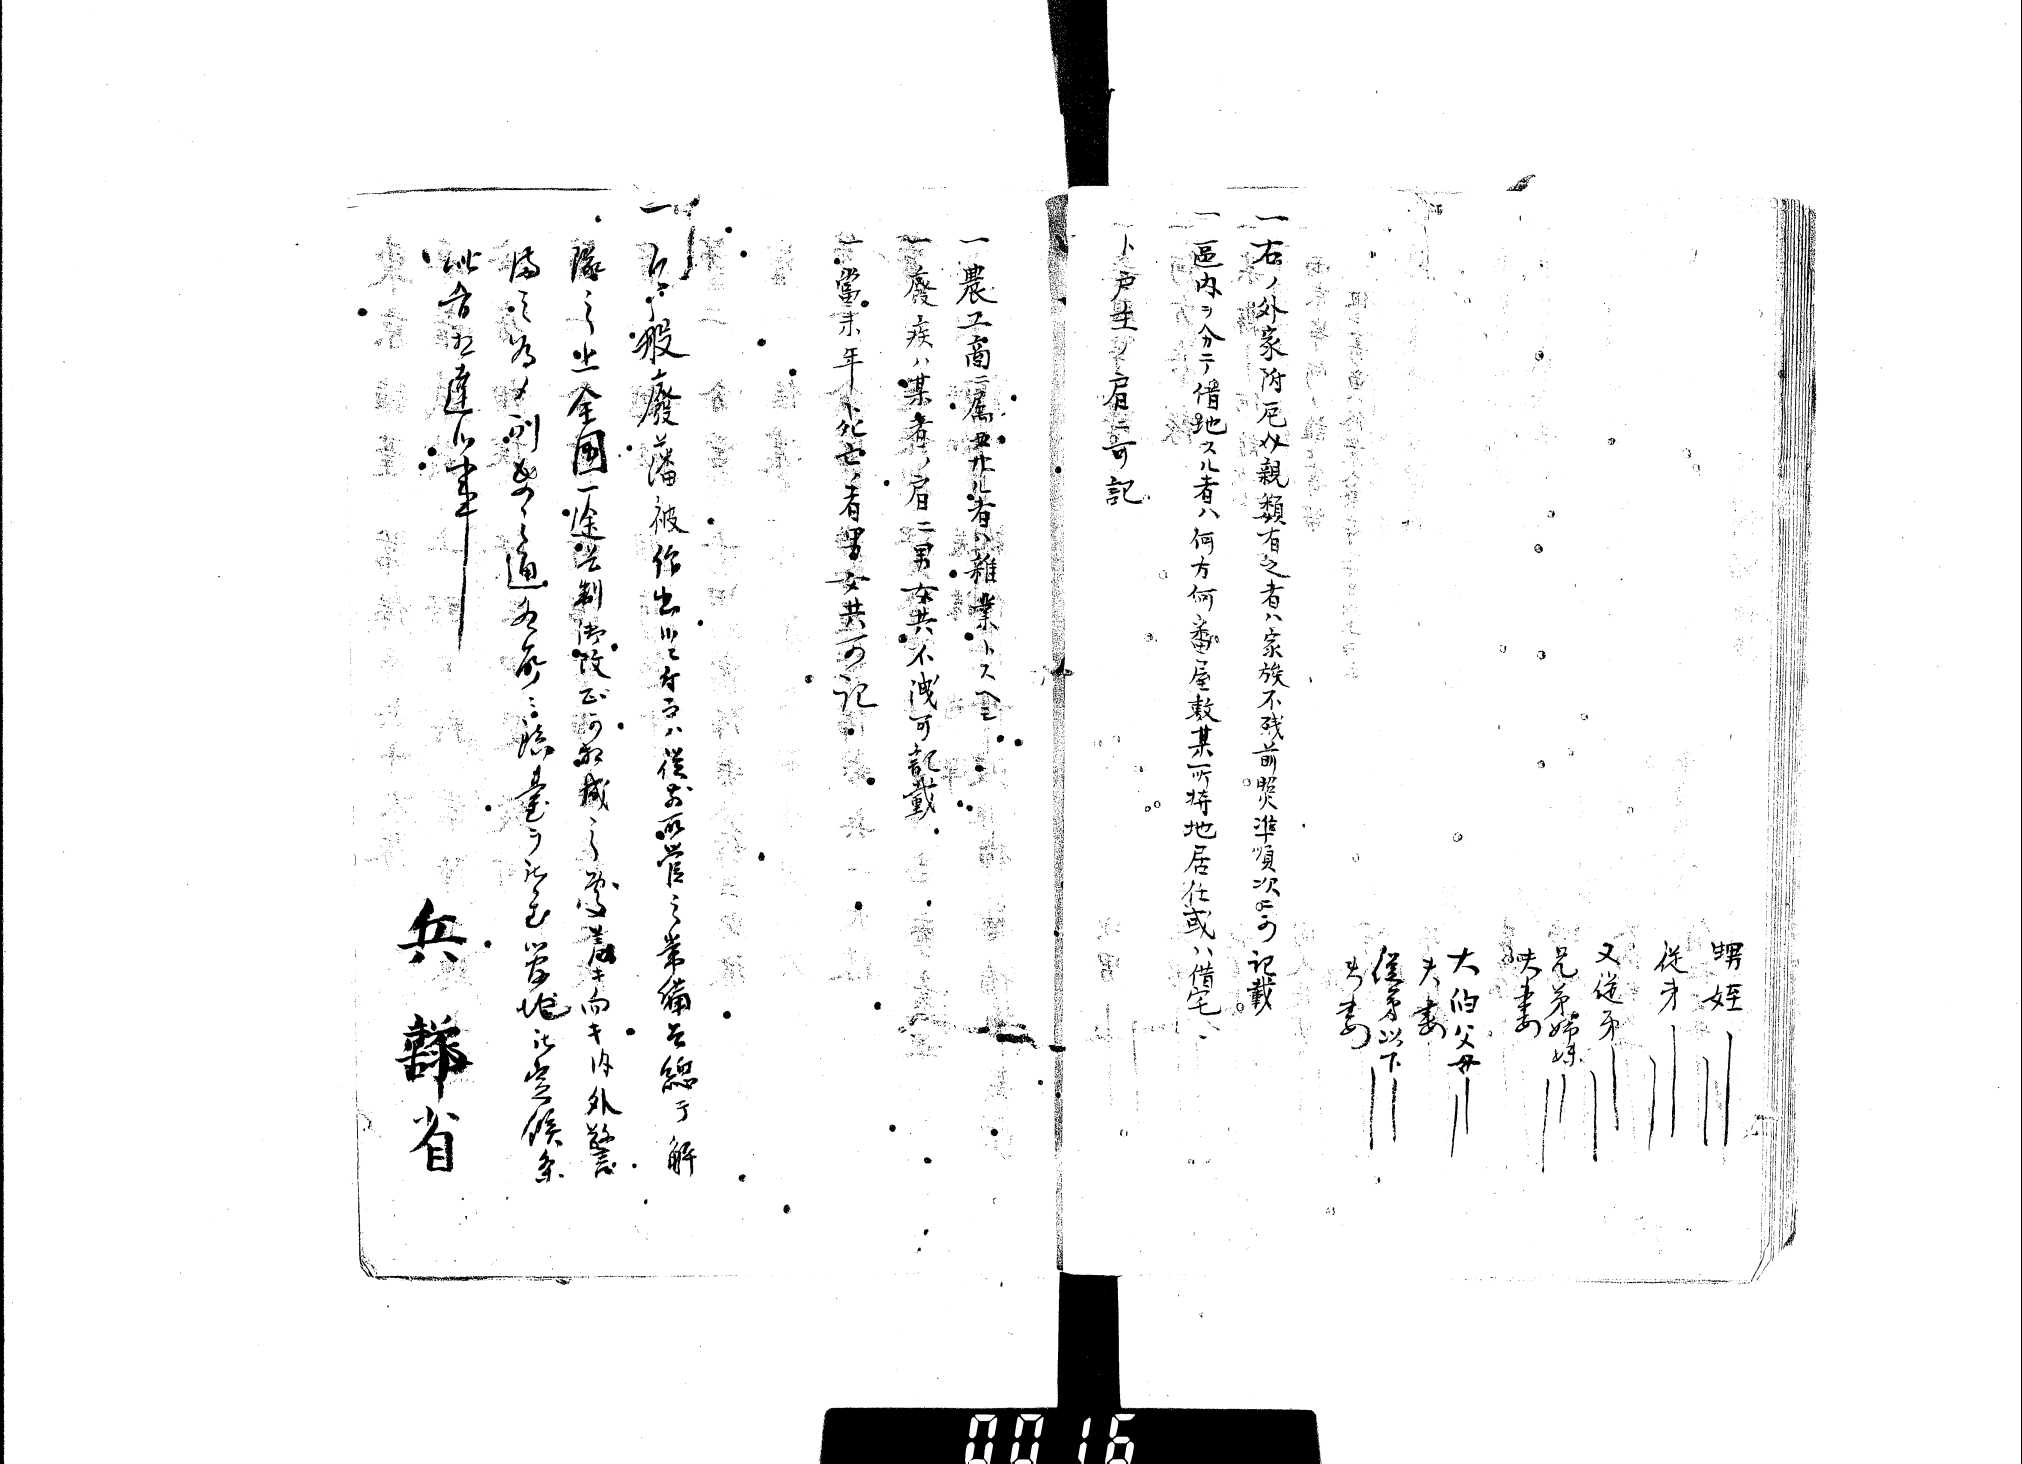 甥姪
従弟
又従弟
兄弟姉妹
夫妻
大伯父母
夫妻
従弟以下
夫妻
一右ノ外家附厄介親類有之者ハ家族不残前照準順次ニ可記載
一區内ヲ分テ借地スル者ハ何方何番屋敷某所持地居住或ハ借宅
ト戸主ノ肩ニ可記
一農工商ニ属せサル者ハ雜業トスヘシ
一癈疾ハ某者ノ肩ニ男女共不洩可記載
一當未年ト死亡ノ者男女共可記
一今般廢藩被仰出候ニ付而ハ従前所管之常備兵總テ解
隊之上全國一途之兵制御改正可相成之處差向キ内外警
備之為メ別紙之通各所ニ鎮臺ヲ被置管地被定候条
此旨相達候事
兵部省
0016